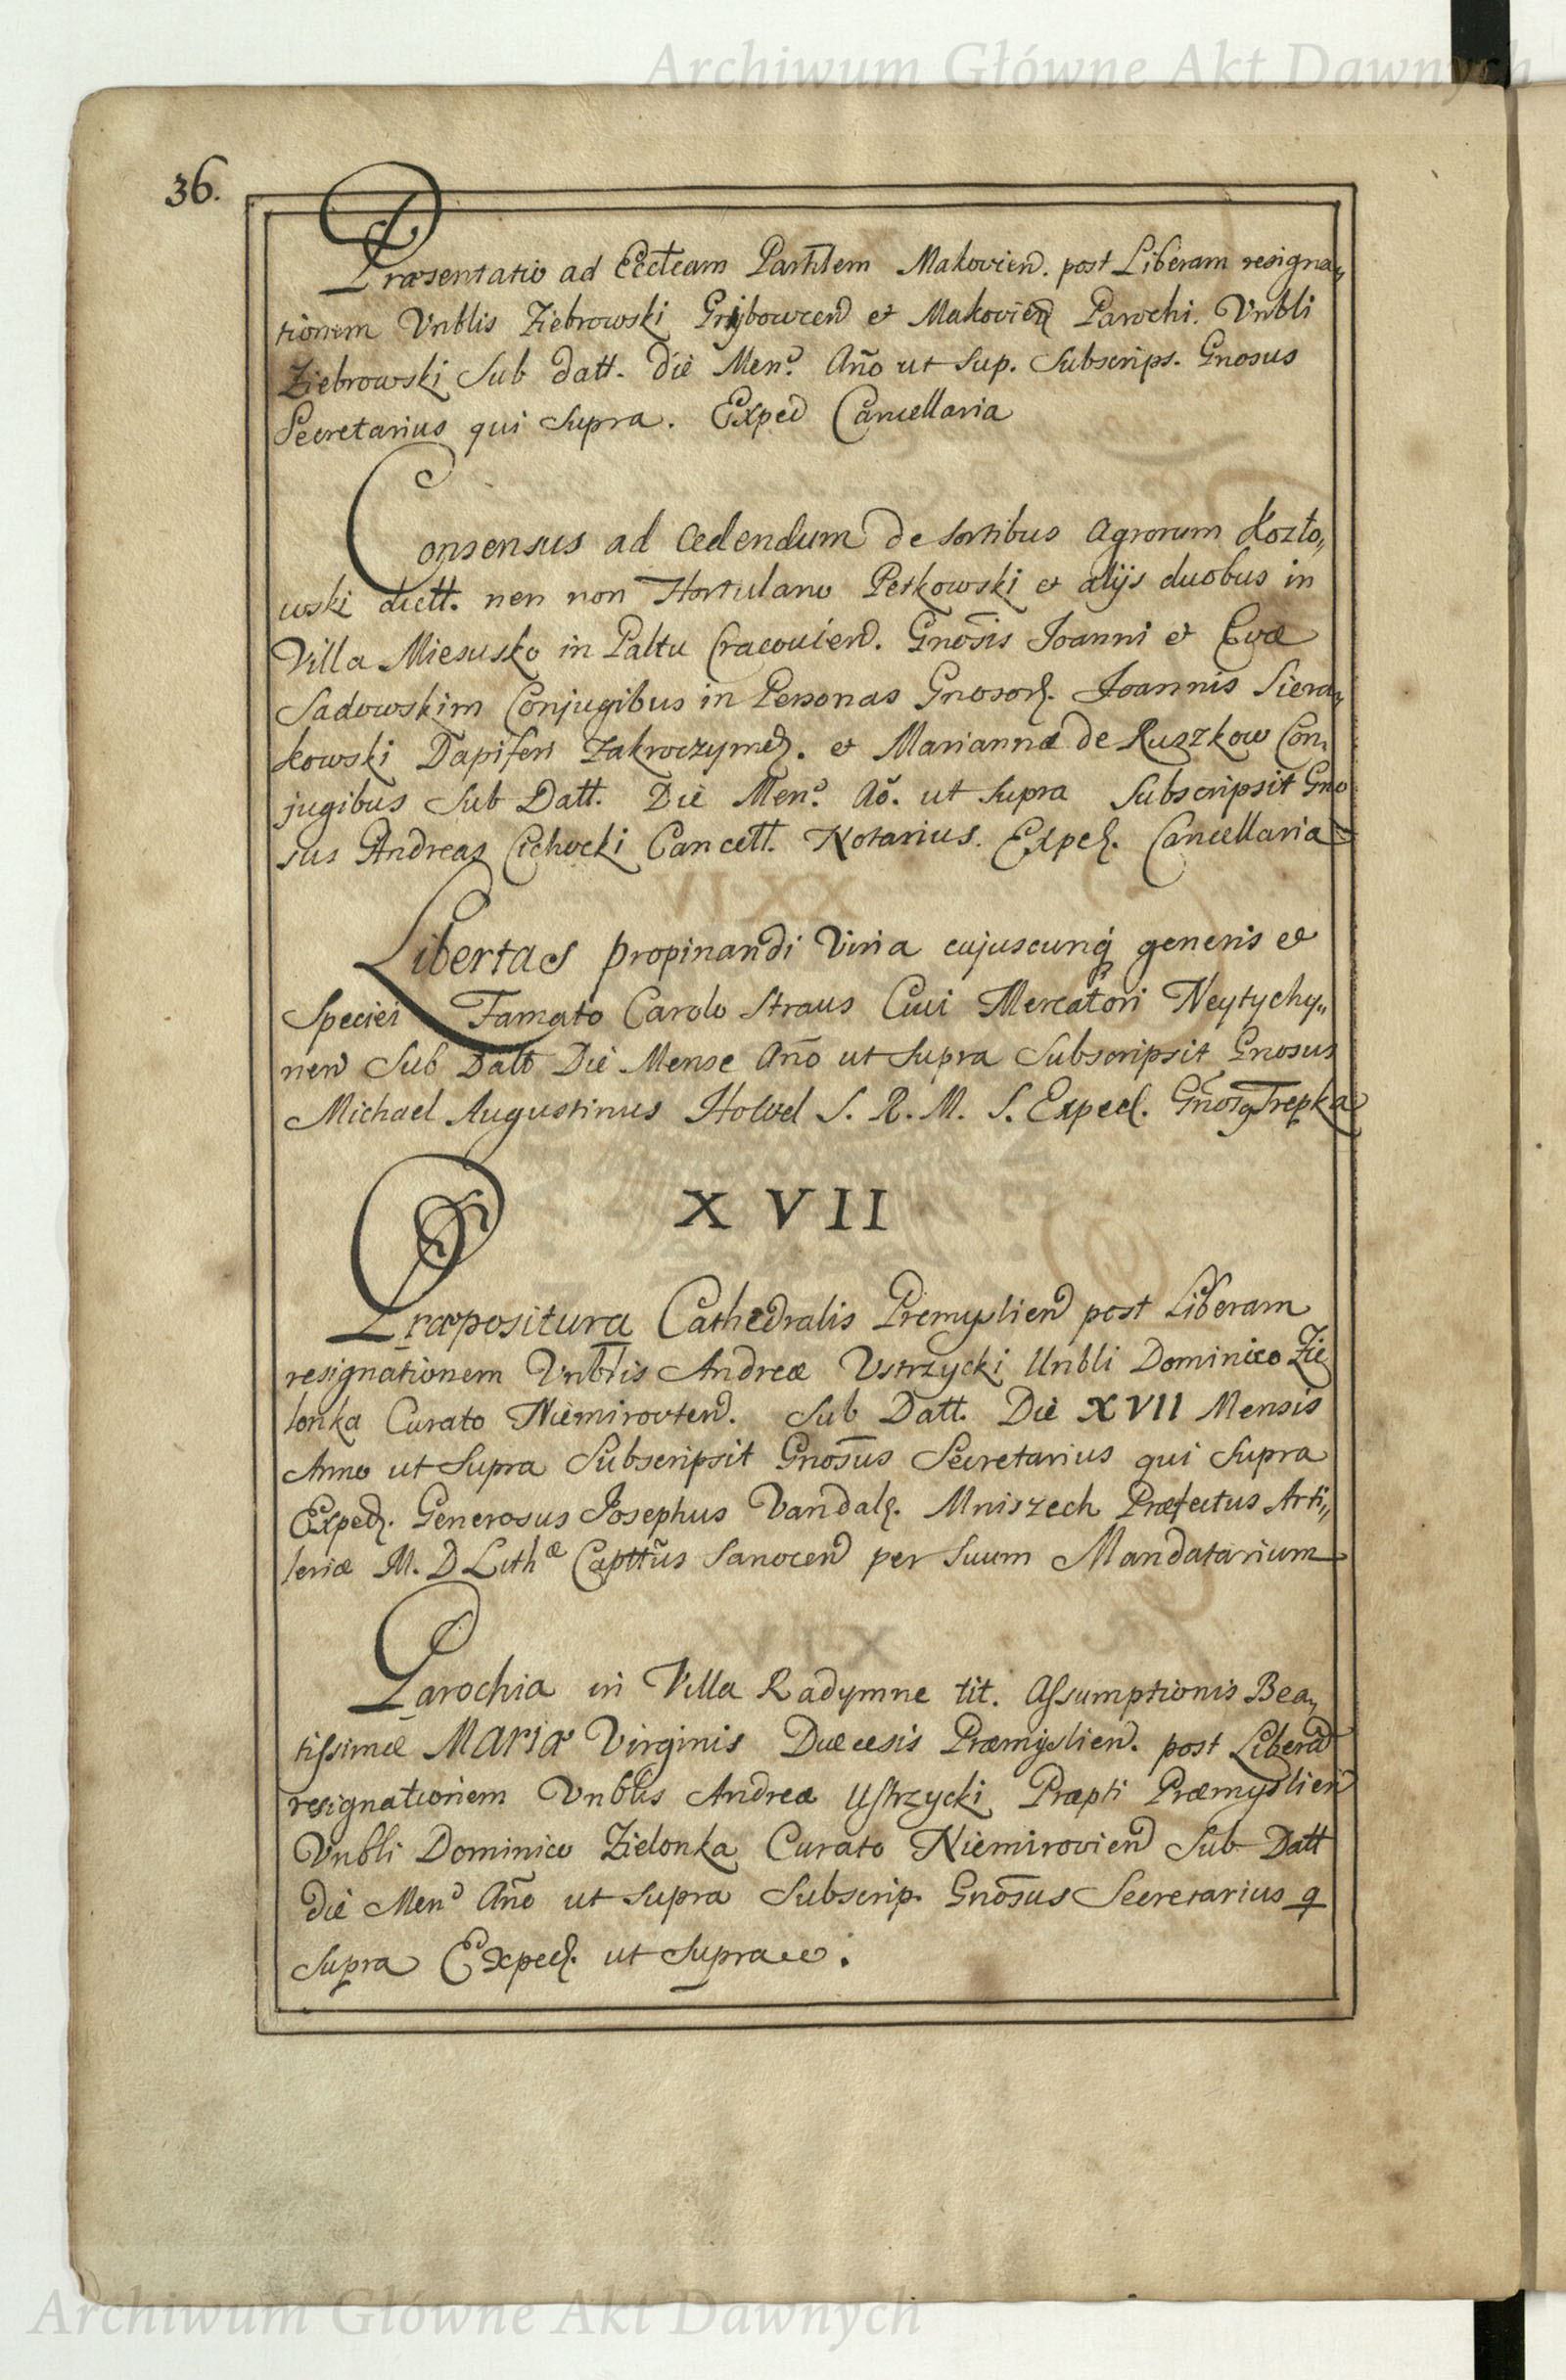 Archiwum Główne Akt Dawnych
36.
Præsentatio ad Eccleam Parhlem Makovien. post Liberam resigna„
tionem Vnblis Ziebrowski Grybovien et Makovien Parochi. Vnbli
Ziebrowski Sub datt. Die Mens. Año ut Sup. Subscrips. Gnosus
Secretarius qui Supra. Exped Cancellaria
Consensus ad cedendum de sortibus Agrorum Kozło„
wski dictt. nen non Hortulano Petkowski et alijs duobus in
Villa Miesusko in Paltu Cracovien. Gnosis Joanni et Evæ
Sadowskim Conjugibus in Personas Gnosor. Joannis Siera„
kowski Dapiferi Zakroczymen. et Mariannæ de Ruszkow Con„
jugibus Sub Datt. Die Mens. Ao. ut Supra Subscripsit Gno
sus Andreas Cichocki Cancell. Notarius. Exped. Cancellaria
Libertas propinandi Vina cujuscunq generis et
Speciei Famato Carolo Straus Civi Mercatori Neytychy„
nen Sub Datt Die Mense Año ut Supra Subscripsit Gnosus
Michael Augustinus Holvel S. R. M. S. Exped. Gnosq Trepka
XVII
Præpositura Cathedralis Premyslien post Liberam
resignationem Vnblis Andreæ Ustrzycki Unbli Dominico Zie
lonka Curato Niemirovien. Sub Datt. Die XVII Mensis
Anno ut Supra Subscripsit Gnosus Secretarius qui Supra
Exped. Generosus Josephus Vandal. Mniszech Præfectus Arti„
leriæ M. D Lithæ Capttus Sanocen per Suum Mandatarium
Parochia in Villa Radymne tit. Assumptionis Bea„
tissimæ MARIÆ Virginis Diæcesis Præmislien. post Liberã
resignationem Vnblis Andreæ Ustrzycki Præpti Præmyslien
Vnbli Dominico Zielonka Curato Niemirovien Sub Datt
Die Mens Año ut Supra Subscrip. Gnosus Secretarius q
Supra Exped. ut Supra
Archiwum Główne Akt Dawnych